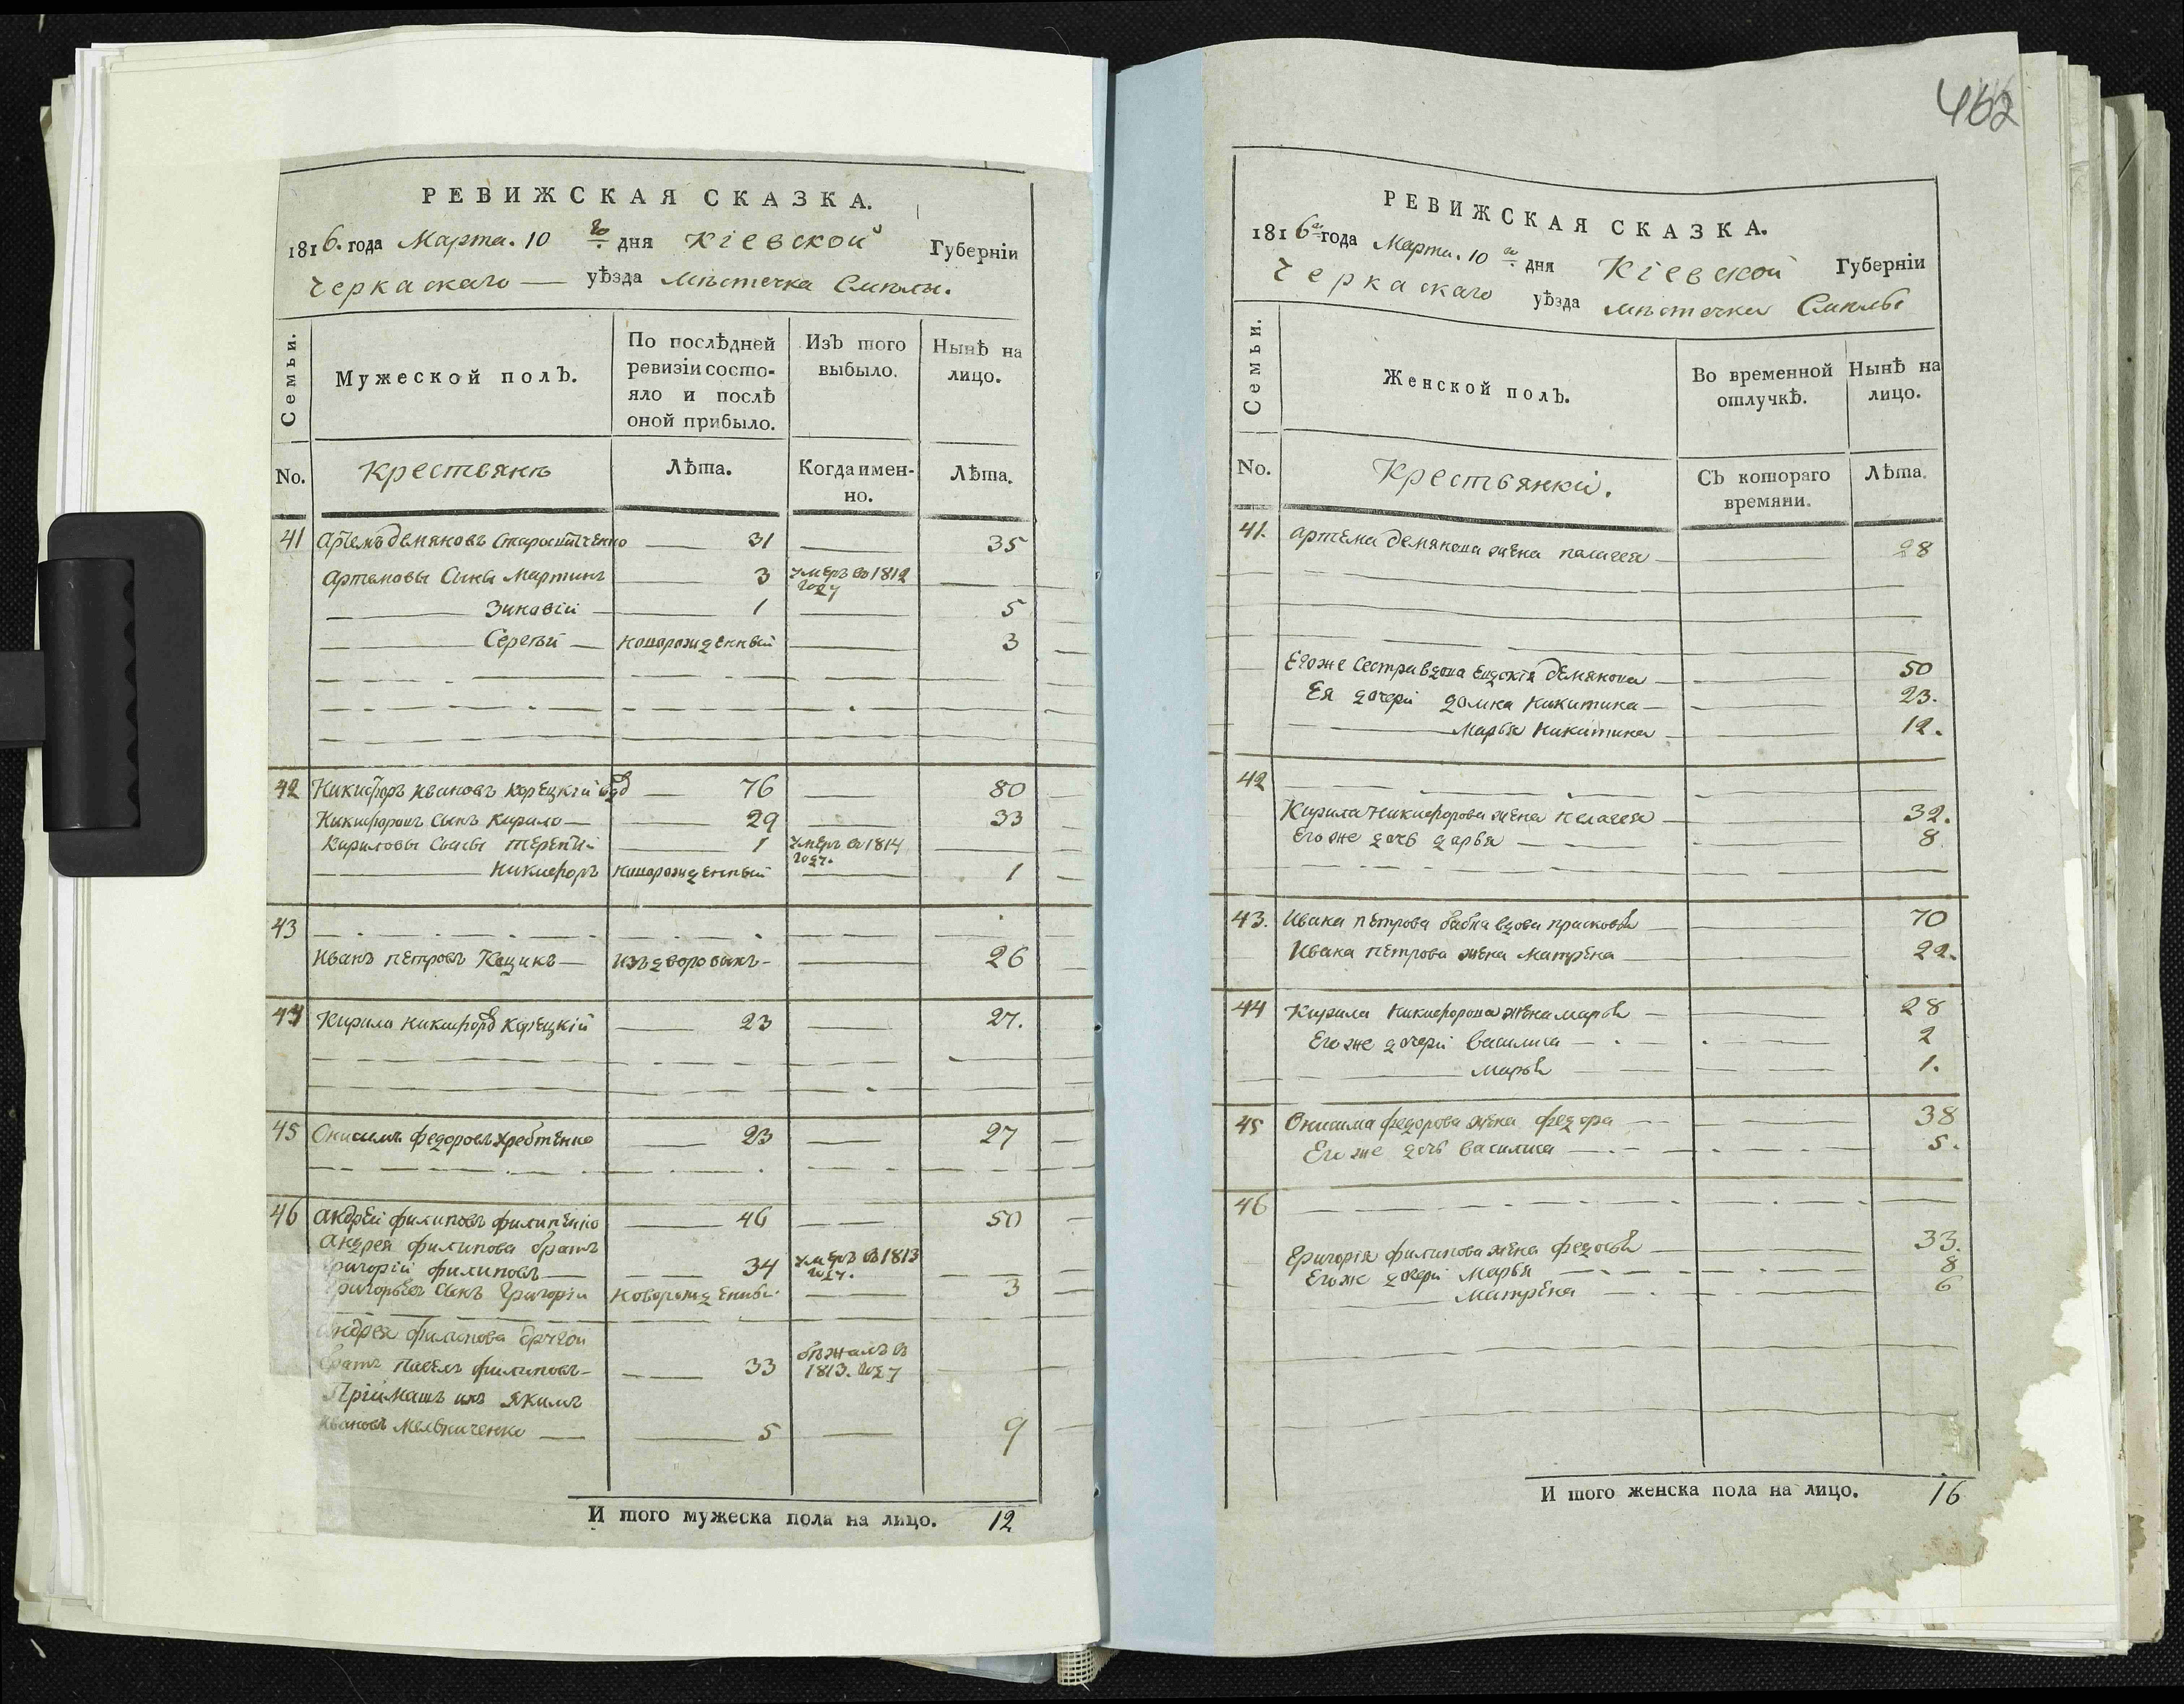 РЕВИЖСКАЯ СКАЗКА.
1816. года Марта. 10 го дня Кіевской Губерніи
Черкаскаго — уѣзда Мѣстечка Смѣлы.
Семьи.
Мужеской полъ.
По послѣдней ревизіи состо-
яло и послѣ
оной прибыло.
Изъ того
выбыло.
Нынѣ на
лицо.
No.
Крестьянъ
Лѣта.
Когда имен-
но.
Лѣта.
41 Артемъ демяновъ — 31 — 35
Артемовы Сыны Мартинъ — 3 умеръ въ 1812 году
Зиновій — 1 — 5
Сергѣй — новорожденный — 3
42 Никифоръ Ивановъ Корецкій — 76 — 80
Никифоровъ Сынъ Кирило — 29 — 33
Кириловы Сыны Терентій — 1 умеръ в 1814 году.
Никифоръ новорожденный — 1
43
Иванъ петровъ Кацикъ — изъ дворовыхъ — 26
44 Кирила Никифоровъ Корецкій — 23 — 27.
45 Онисимъ федоровъ хребтенко — 23 — 27
46 Андрей филиповъ филипенко — 46 — 50
Андрея филипова братъ
Григорій филиповъ — 34 умеръ в 1813 году.
Григорьевъ Сынъ Григорій новорожденный — 3
Андрея филипова другой
братъ павелъ филиповъ — 33 бѣжалъ в 1813. году
Пріймашъ ихъ Якимъ
Ивановъ Мельниченко — 5 — 9
И того мужеска пола на лицо. 12
462
РЕВИЖСКАЯ СКАЗКА.
1816 го года Марта. 10 го дня Кіевской Губерніи
Черкаскаго уѣзда мѣстечка Смѣлы
Семьи.
Женской полъ.
Во временной
отлучкѣ.
Нынѣ на
лицо.
No.
Крестьянки.
Съ котораго
времяни.
Лѣта.
41. Артема демянова жена палагея — 28
Его же Сестра вдова Евдокія демянова — 50
Ея дочери домна Никитина — 23.
Марья Никитина — 12.
42
Кирила Никифорова жена пелагея — 32.
Его же дочь дарья — 8
43. Ивана петрова бабка вдова прасковья — 70
Ивана петрова жена Матрена — 22.
44 Кирила Никифорова жена марья — 28
Его же дочери Василиса — 2
Марья — 1.
45 Онисима федорова жена федора — 38
Его же дочь Василиса — 5.
46
Григорія филипова жена федосья — 33.
Его ж дочери Марья — 8
Матрена — 6
И того женска пола на лицо. 16